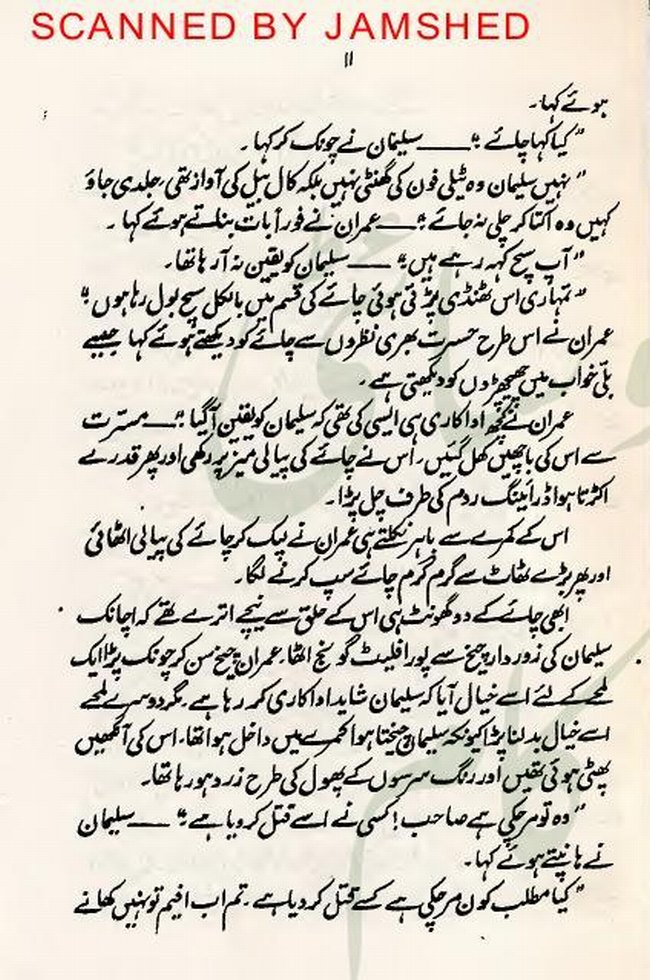 SCANNED BY JAMSHED
۱۱
ہوئے کہا۔
"کیا کہا چائے"۔ـــــ سلیمان نے چونک کر کہا۔
"نہیں سلیمان وہ ٹیلی فون کی گھنٹی نہیں بلکہ کال بیل کی آواز تھی۔ جلدی جاؤ
کہیں وہ اکتا کر چلی نہ جائے"۔ــــ عمران نے فوراً بات بناتے ہوئے کہا۔
"آپ سچ کہہ رہے ہیں"۔ـــــ سلیمان کو یقین نہ آ رہا تھا۔
"تمہاری اس ٹھنڈی ہوتی ہوئی چائے کی قسم میں بالکل سچ بول رہا ہوں"
عمران نے اس طرح حسرت بھری نظروں سے چائے کو دیکھتے ہوئے کہا جیسے
بلی خواب میں چھیچھڑوں کو دیکھتی ہے۔
عمران نے کچھ اداکاری ہی ایسی کی تھی کہ سلیمان کو یقین آگیا"۔ــــ مسرت
سے اس کی باچھیں کھل گئیں۔ اس نے چائے کی پیالی میز پر رکھی اور پھر قدرے
اکڑتا ہوا ڈرائینگ روم کی طرف چل پڑا۔
اس کے کمرے سے باہر نکلتے ہی عمران نے لپک کر چائے کی پیالی اٹھائی
اور پھر بڑے ٹھاٹ سے گرم گرم چائے سپ کرنے لگا۔
ابھی چائے کے دو گھونٹ ہی اس کے حلق سے نیچے اترے تھے کہ اچانک
سلیمان کی زوردار چیخ سے پورا فلیٹ گونج اٹھا۔ عمران چیخ سن کر چونک پڑا ایک
لمحے کے لئے اسے خیال آیا کہ سلیمان شاید اداکاری کر رہا ہے۔ مگر دوسرے لمحے
اسے خیال بدلنا پڑا کیونکہ سلیمان چیختا ہوا کمرے میں داخل ہوا تھا۔ اس کی آنکھیں
پھٹی ہوئی تھیں اور رنگ سرسوں کے پھول کی طرح زرد ہو رہا تھا۔
"وہ تو مر چکی ہے صاحب! کسی نے اسے قتل کر دیا ہے"۔ـــــ سلیمان
نے ہانپتے ہوئے کہا۔
"کیا مطلب کون مر چکی ہے کسے قتل کر دیا ہے۔ تم اب افیم تو نہیں کھانے